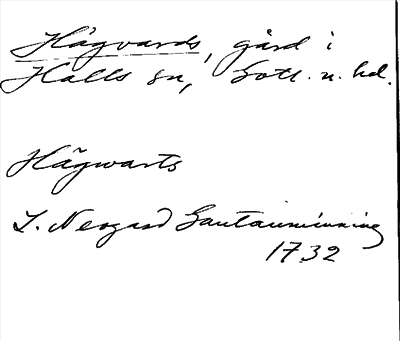 Hägvards, gård i
Halls sn, Gotl. n. hd.
Hägwarts
J. Neogard Gautauminning
1732